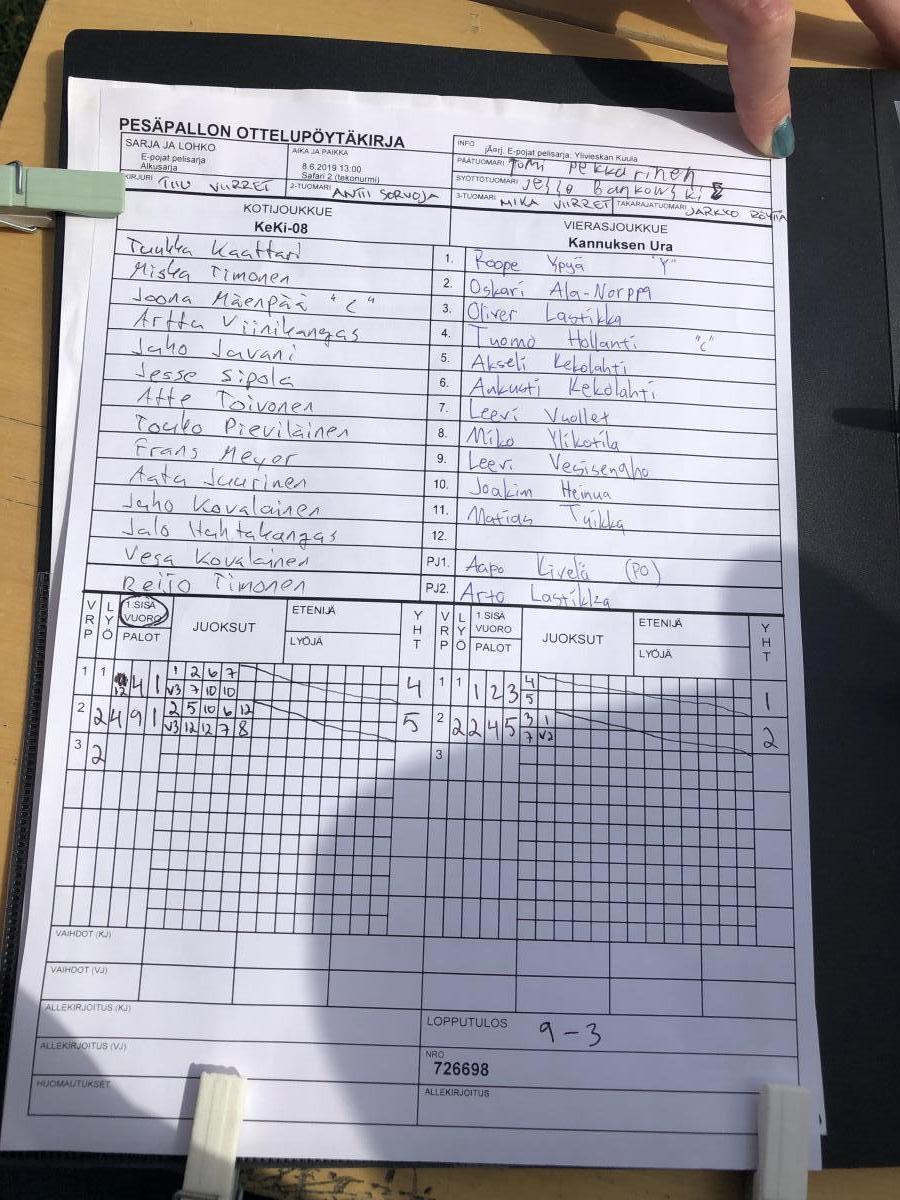 PESÄPALLON OTTELUPÖYTÄKIRJA
SARJA JA LOHKO
E-pojat pelisarja
Alkusarja
AIKA JA PAIKKA
8.6.2019 13:00
Safari 2 (tekonurmi)
INFO
jÄorj. E-pojat pelisarja: Ylivieskan Kuula
PÄÄTUOMARI Tomi Pekkarinen
SYÖTTÖTUOMARI Jesse Bankowski
KIRJURI TIIU VIIRRET
2-TUOMARI ANTII SORVOJA
3-TUOMARI MIKA VIIRRET
TAKARAJATUOMARI JARKKO RÖYTIÄ
KOTIJOUKKUE
KeKi-08
VIERASJOUKKUE
Kannuksen Ura
Tuukka Kaattari 1. Roope Ypyä "Y"
Miska Timonen 2. Oskari Ala-Norppa
Joona Mäenpää "C" 3. Oliver Lastikka
Arttu Viinikangas 4. Tuomo Hollanti "C"
Jaho Javani 5. Akseli Kekolahti
Jesse Sipola 6. Aukusti Kekolahti
Atte Toivonen 7. Leevi Vuollet
Touko Pieviläinen 8. Miko Ylikotila
Frans Meyer 9. Leevi
Aatu Juurinen 10. Joakim Heinua
Juho Kovalainen 11. Matias Tuikka
Jalo Huhtakangas 12.
Vesa Kovalainen PJ1. Aapo Kivelä (PO)
Reijo Timonen PJ2. Arto Lastikka
VRP LYÖ 1.SISÄ VUORO PALOT JUOKSUT ETENIJÄ LYÖJÄ YHT VRP LYÖ 1.SISÄ VUORO PALOT JUOKSUT ETENIJÄ LYÖJÄ YHT
1 1 12 4 1 1 2 6 7 4 1 1 1 2 3 4 1
V3 7 10 10 5
2 2 4 9 1 2 5 10 6 12 5 2 2 2 4 5 3 1 2
V3 12 12 7 8 7 V2
3 2 3
VAIHDOT (KJ)
VAIHDOT (VJ)
ALLEKIRJOITUS (KJ)
LOPPUTULOS 9-3
ALLEKIRJOITUS (VJ)
NRO
726698
HUOMAUTUKSET
ALLEKIRJOITUS